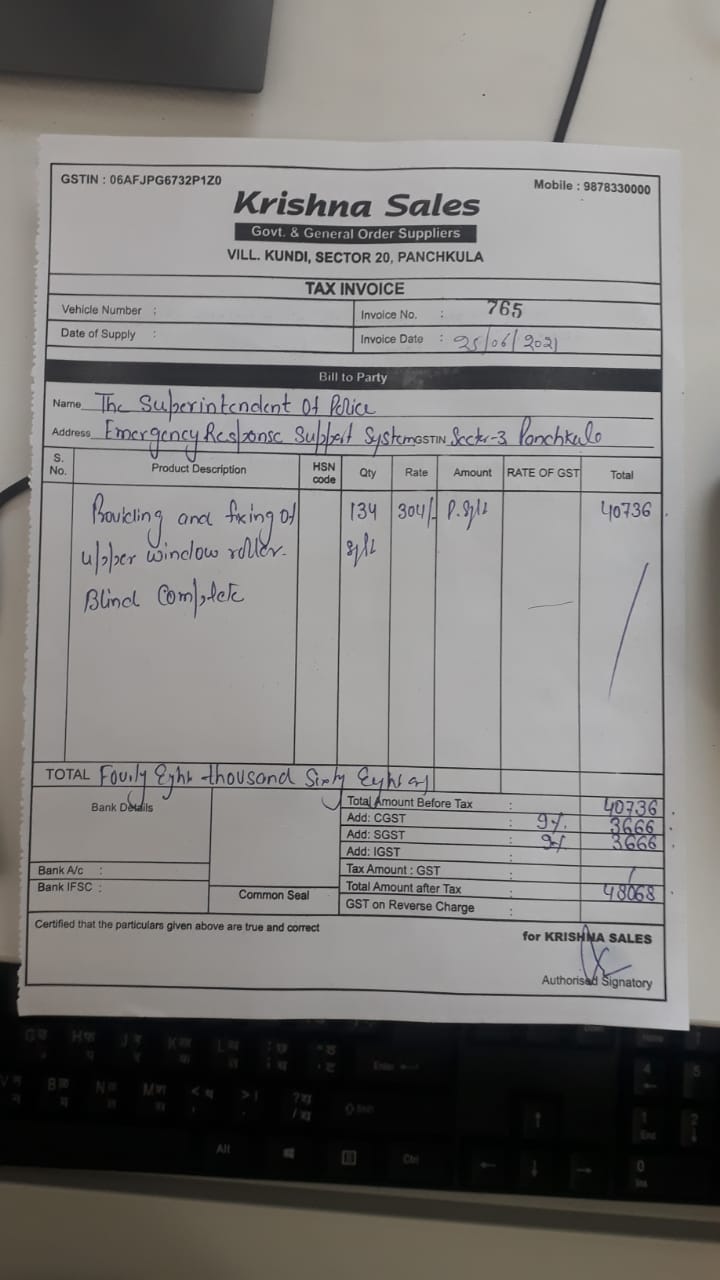 GSTIN : 06AFJPG6732P1Z0
Mobile : 9878330000
Krishna Sales
Govt. & General Order Suppliers
VILL. KUNDI, SECTOR 20, PANCHKULA
TAX INVOICE
Vehicle Number :
Invoice No. : 765
Date of Supply :
Invoice Date : 25/06/2021
Bill to Party
Name The Superintendent Of Police
Address Emergency Response Support System GSTIN Sector-3 Panchkula
S. No. Product Description HSN code Qty Rate Amount RATE OF GST Total
Providing and fixing of 134 304/- P.Sqft 40736
upper window roller. Sqft
Blind Complete
TOTAL Fourty Eight thousand Sixty Eight
Bank Details
Total Amount Before Tax : 40736
Add: CGST : 9% 3666
Add: SGST : 9% 3666
Add: IGST :
Bank A/c :
Tax Amount : GST
Bank IFSC :
Common Seal
Total Amount after Tax : 48068
GST on Reverse Charge :
Certified that the particulars given above are true and correct
for KRISHNA SALES
Authorised Signatory
Alt
Ctrl